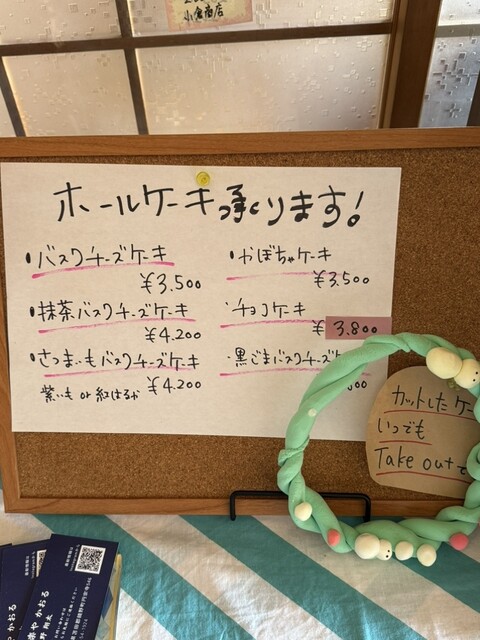 小倉商店
ホールケーキ承ります!
・バスクチーズケーキ
¥3.500
・抹茶バスクチーズケーキ
¥4.200
・さつまいもバスクチーズケーキ
紫いも or 紅はるか ¥4.200
・かぼちゃケーキ
¥3.500
・チョコケーキ
¥3.800
・黒ごまバスクチーズ
カットしたケー
いつでも
Take out